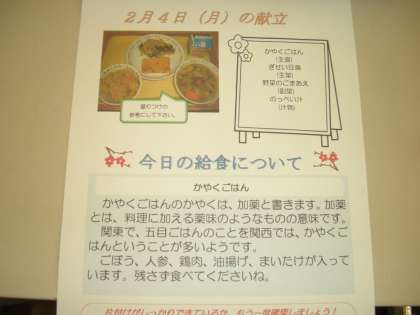 2月4日（月）の献立
かやくごはん
（主食）
ぎせい豆腐
（主菜）
野菜のごまあえ
（副菜）
のっぺい汁
（汁物）
盛りつけの
参考にして下さい。
今日の給食について
かやくごはん
かやくごはんのかやくは、加薬と書きます。加薬
とは、料理に加える薬味のようなものの意味です。
関東で、五目ごはんのことを関西では、かやくご
はんということが多いようです。
ごぼう、人参、鶏肉、油揚げ、まいたけが入って
います。残さず食べてくださいね。
片付けがしっかりできているか、もう一度確認しましょう！